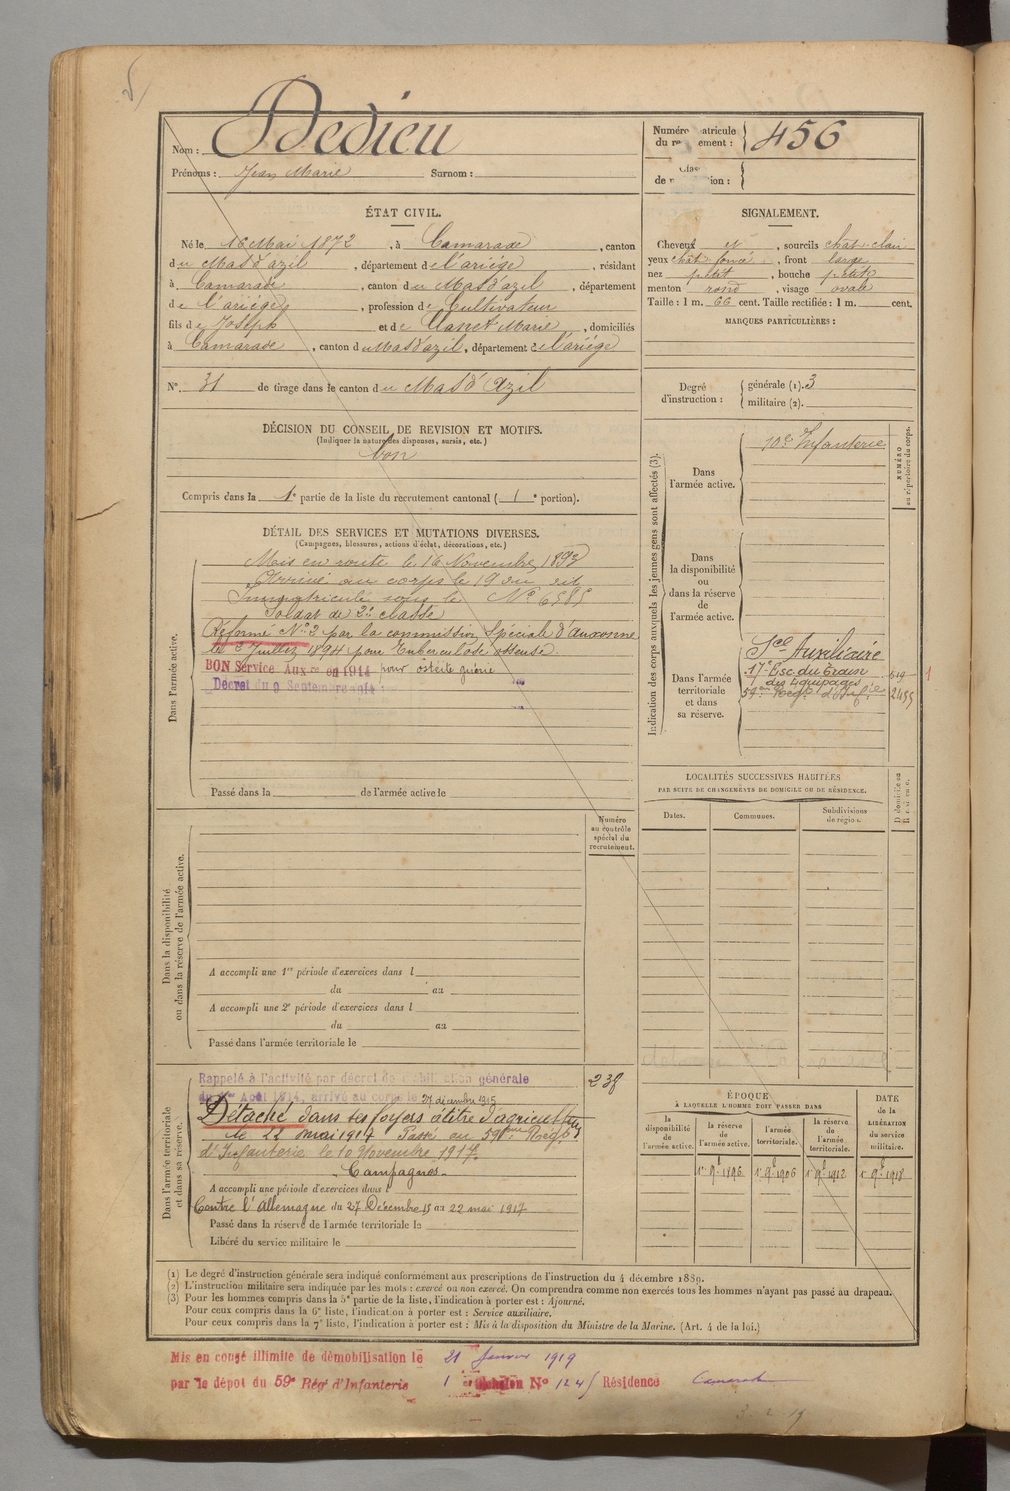 Nom : Dedieu
Prénoms : Jean Marie Surnom :
Numéro matricule du recrutement : 456
Classe de mobilisation :
ÉTAT CIVIL.
Né le 16 Mai 1872, à Camarade, canton
du Mas d'azil, département de l'ariège, résidant
à Camarade, canton du Mas d'azil, département
de l'ariège, profession de Cultivateur
fils de Joseph et de Clanet Marie, domiciliés
à Camarade, canton du Mas d'azil, département de l'ariège
N° 31 de tirage dans le canton du Mas d'Azil
SIGNALEMENT.
Cheveux et, sourcils chât-clair
yeux chât-foncé, front large
nez petit, bouche petite
menton rond, visage ovale
Taille : 1 m. 66 cent. Taille rectifiée : 1 m. cent.
MARQUES PARTICULIÈRES :
Degré d'instruction : générale (1). 3
militaire (2).
DÉCISION DU CONSEIL DE REVISION ET MOTIFS.
(Indiquer la nature des dispenses, sursis, etc.)
bon
Compris dans la 1e partie de la liste du recrutement cantonal ( 1e portion).
DÉTAIL DES SERVICES ET MUTATIONS DIVERSES.
(Campagnes, blessures, actions d'éclat, décorations, etc.)
Dans l'armée active.
Mis en route le 16 Novembre 1893
Arrivé au corps le 19 du dit
Immatriculé sous le N° 6585
Soldat de 2e classe
Réformé N° 2 par la commission Spéciale d'Auxonne
le 3 Juillet 1894 pour Tuberculose osseuse.
BON Service Auxre en 1914 pour ostéite guérie
Décret du 9 Septembre 1914
Passé dans la de l'armée active le
Indication des corps auxquels les jeunes gens sont affectés (3).
NUMÉRO au répertoire du corps.
Dans l'armée active.
10e Infanterie
Dans la disponibilité ou dans la réserve de l'armée active.
Dans l'armée territoriale et dans sa réserve.
Sce Auxiliaire
17e Esc. du Train des Equipages 519
59ème Reg. d'Infie 2455
1
LOCALITÉS SUCCESSIVES HABITÉES
PAR SUITE DE CHANGEMENTS DE DOMICILE OU DE RÉSIDENCE.
Dates. Communes. Subdivisions de région. D domicile ou R résidence.
Dans la disponibilité ou dans la réserve de l'armée active.
Numéro au contrôle spécial du recrutement.
A accompli une 1re période d'exercices dans l
du au
A accompli une 2e période d'exercices dans l
du au
Passé dans l'armée territoriale le
Dans l'armée territoriale et dans sa réserve.
Rappelé à l'activité par décret de mobilisation générale
du 1er Août 1914, arrivé au corps le 27 décembre 1915
238
Détaché dans ses foyers à titre d'agriculteur
le 22 mai 1917 Passé au 59ème Régt
d'Infanterie le 10 Novembre 1917.
Campagnes.
A accompli une période d'exercices dans l
Contre l'Allemagne du 27 Décembre 15 au 22 mai 1917
Passé dans la réserve de l'armée territoriale le
Libéré du service militaire le
ÉPOQUE
A LAQUELLE L'HOMME DOIT PASSER DANS
la disponibilité de l'armée active.
la réserve de l'armée active.
l'armée territoriale.
la réserve de l'armée territoriale.
DATE de la LIBÉRATION du service militaire.
1er 9bre 1896 1er 9bre 1906 1er 9bre 1912 1er 9bre 1918
(1) Le degré d'instruction générale sera indiqué conformément aux prescriptions de l'instruction du 4 décembre 1889.
(2) L'instruction militaire sera indiquée par les mots : exercé ou non exercé. On comprendra comme non exercés tous les hommes n'ayant pas passé au drapeau.
(3) Pour les hommes compris dans la 5e partie de la liste, l'indication à porter est : Ajourné.
Pour ceux compris dans la 6e liste, l'indication à porter est : Service auxiliaire.
Pour ceux compris dans la 7e liste, l'indication à porter est : Mis à la disposition du Ministre de la Marine. (Art. 4 de la loi.)
Mis en congé illimité de démobilisation le 21 Janvier 1919
par le dépôt du 59e Rég' d'Infanterie 1 échelon N° 1245 Résidence Camarade
3-2-19